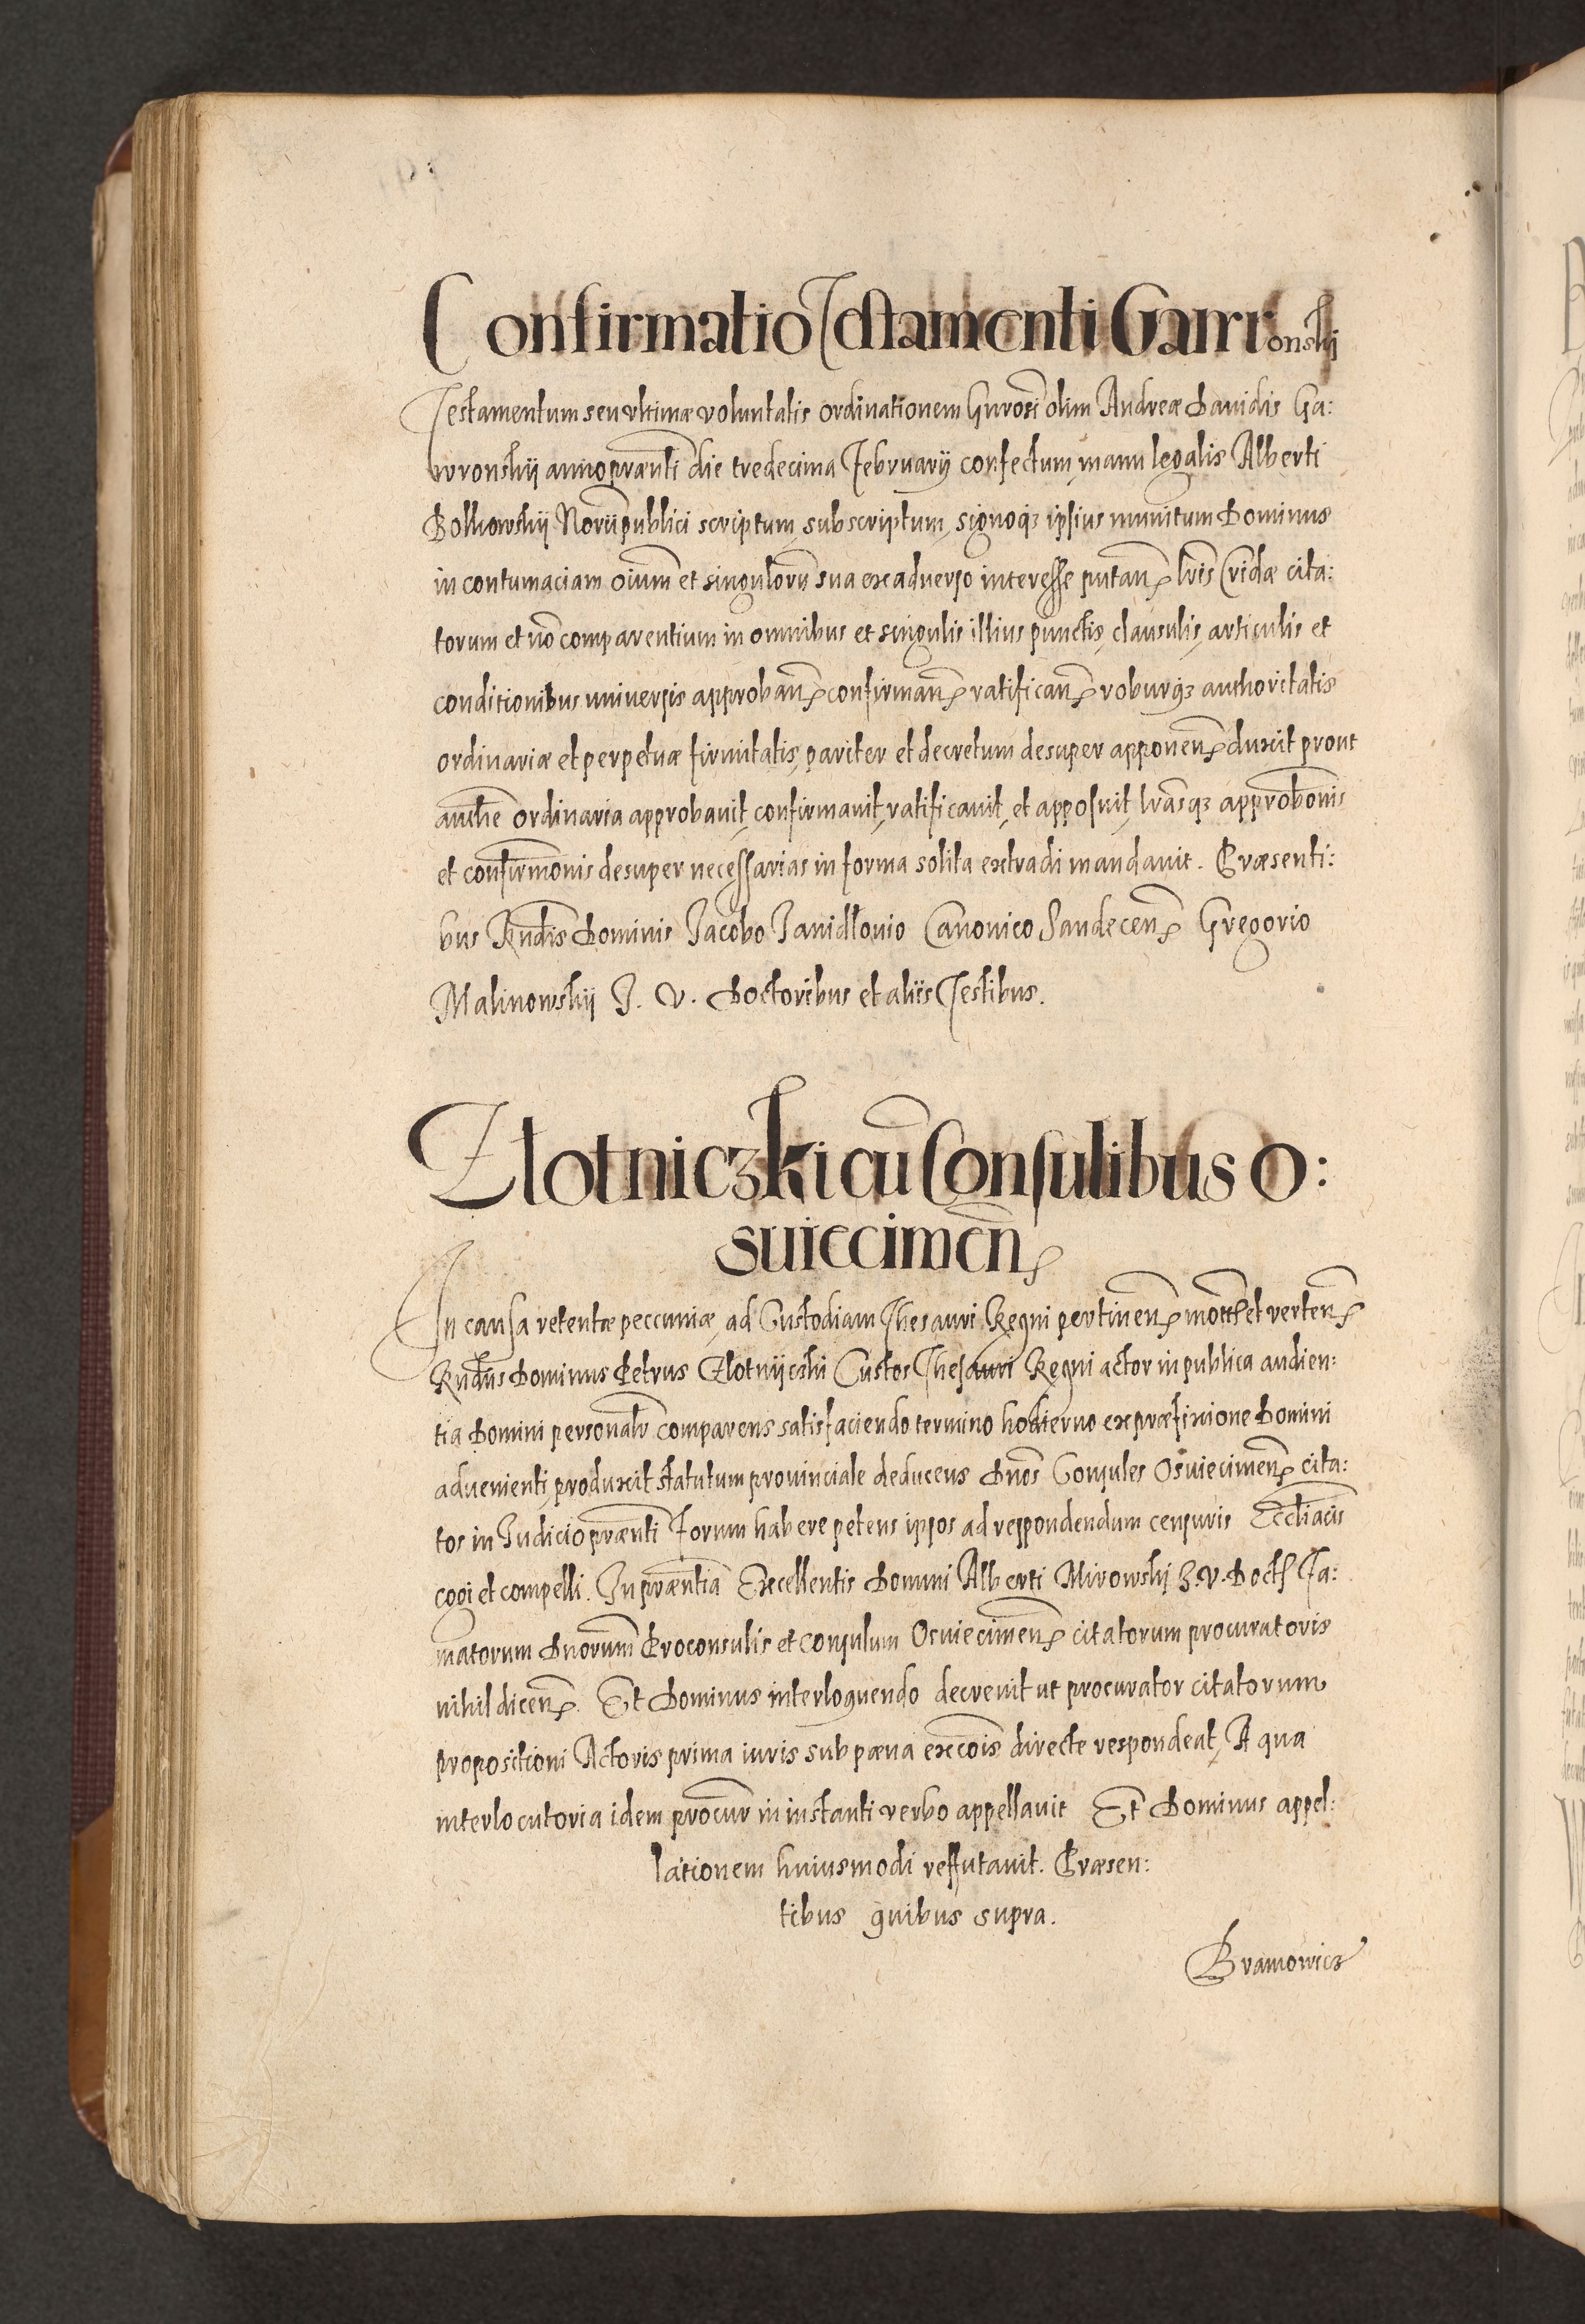 Confirmatio Testamenti Gawronskij
Testamentum seu vltimæ voluntatis ordinationem Gnrosi olim Andreæ Dauidis Ga:
wronskij anno prænti die tredecima Februarij confectum, manu legalis Alberti
Bolkowskij Norij publici scriptum, subscriptum, signoq3 ipsius munitum Dominus
in contumaciam oium et singulorũ sua ex aduerso interesse putañ lris Cridæ cita:
torum et nõ comparentium in omnibus et singulis illius punctis, clausulis, articulis et
conditionibus uniuersis approbañ confirmañ ratificañ roburq3 authoritatis
ordinariæ et perpetuæ firmitatis, pariter et decretum desuper apponeñ duxit prout
authe ordinaria approbauit, confirmauit, ratificauit, et apposuit, lrasq3 approbonis
et confirmonis desuper necessarias in forma solita extradi mandauit. Præsenti:
bus Rndis Dominis Jacobo Janidlouio Canonico Sandeceñ Gregorio
Malinowskij J. V. Doctoribus et aliis Testibus.
Zlotniczki cũ Consulibus O:
suiecimeñ
In causa retentæ peccuniæ, ad Custodiam Thesauri Regni pertineñ mott et verteñ
Rndus Dominus Petrus Zlotnijcski Custos Thesauri Regni actor in publica audien:
tia Domini personalr comparens satisfaciendo termino hodierno ex præfixione Domini
aduenienti, produxit statutum prouinciale deducens Dnos Consules Osuiecimeñ cita:
tos in Iudicio prænti Forum habere petens ipsos ad respondendum censuris Eccliacis
cogi et compelli. In præntia Excellentis Domini Alberti Mirowski J. V. Doct Fa:
matorum Dnorum Proconsulis et consulum Osuiecimeñ citatorum procuratoris
nihil diceñ. Et Dominus interloquendo decreuit ut procurator citatorum
propositioni Actoris prima iuris sub pæna excois directe respondeat, A qua
interlocutoria idem procur in instanti verbo appellauit Et Dominus appel:
lationem huiusmodi reffutauit. Præsen:
tibus quibus supra.
Bramowicz